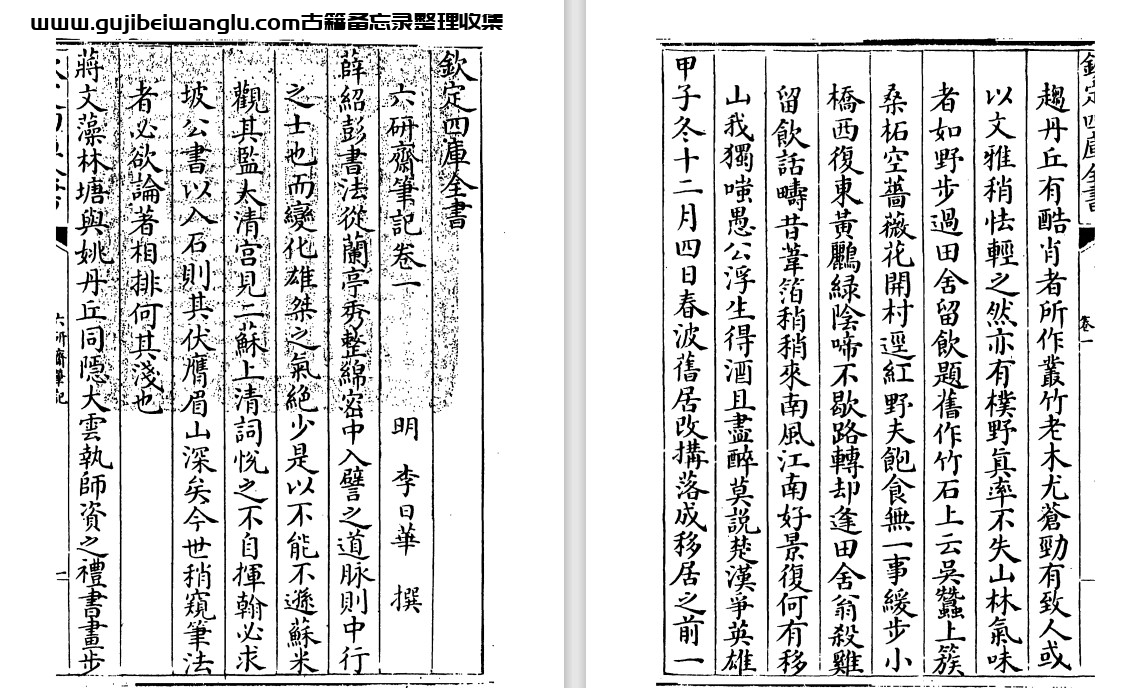 www.gujibeiwanglu.com古籍备忘录整理收集
欽定四庫全書
六研齋筆記卷一
明 李日華 撰
薛紹彭書法從蘭亭秀整綿密中入譬之道脉則中行
之士也而變化雄桀之氣絶少是以不能不遜蘇米
觀其監太清宫見二蘇上清詞悅之不自揮翰必求
坡公書以入石則其伏膺眉山深矣今世稍窺筆法
者必欲論著相排何其淺也
蔣文藻林塘與姚丹丘同隱大雲執師資之禮書畫步
六研齋筆記
一
欽定四庫全書
卷一
趨丹丘有酷肖者所作叢竹老木尤蒼勁有致人或
以文雅稍怯輕之然亦有樸野真率不失山林氣味
者如野步過田舍留飲題舊作竹石上云吳蠶上簇
桑柘空薔薇花開村逕紅野夫飽食無一事緩步小
橋西復東黃鸝緑陰啼不歇路轉却逢田舍翁殺雞
留飲話疇昔葦箔稍稍來南風江南好景復何有移
山我獨嗤愚公浮生得酒且盡醉莫説楚漢爭英雄
甲子冬十二月四日春波舊居改搆落成移居之前一